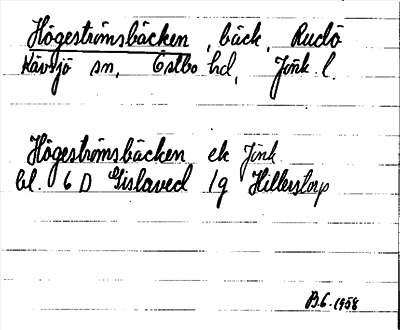 Högeströmsbäcken, bäck, Rudö
Kävsjö sn, Östbo hd, Jönk. l.
Högeströmsbäcken ek Jönk
bl. 6 D Gislaved 1g Hillerstorp
B.G. 1958